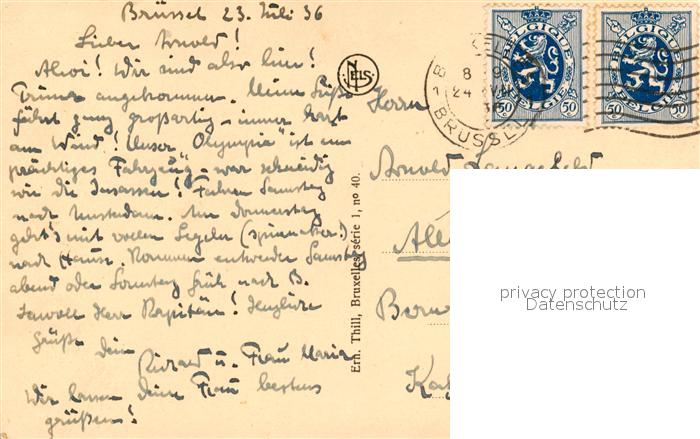 Brüssel 23. Juli 36
Lieber Arnold!
Ahoi! Wir sind also hier!
Prima angekommen. Meine Süße
fährt ganz großartig - immer hart
am Wind! Unser "Olympia" ist ein
prächtiges Fahrzeug - war schneidig
wie die Insassen! Fahren Samstag
nach Amsterdam. Am Donnerstag
geht's mit vollen Segeln (spinnaker!)
nach Hause. Kommen entweder Samstag
abend oder Sonntag früh nach B.
Jawoll Herr Kapitän! Herzliche
Grüße Dein
Richard u. Frau Maria
Wir lassen Deine Frau bestens
grüßen!
NELS
Ern. Thill, Bruxelles, série 1, no 40.
BELGIQUE
50 50
BELGIE
BELGIQUE
50 50
BELGIE
24
BRUSSEL
Herrn
Arnold
Bern
privacy protection
Datenschutz